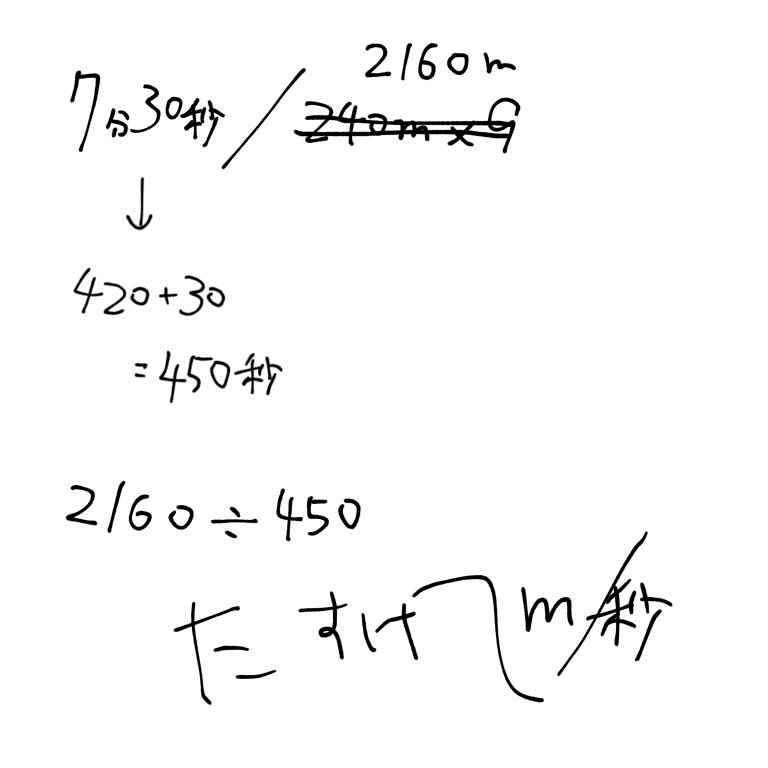 2160m
7分30秒/240m×9
↓
420+30
=450秒
2160÷450
たすけ m/秒